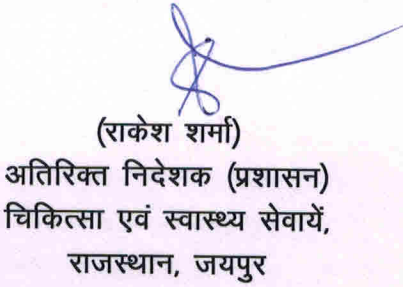 (राकेश शर्मा)
अतिरिक्त निदेशक (प्रशासन)
चिकित्सा एवं स्वास्थ्य सेवायें,
राजस्थान, जयपुर